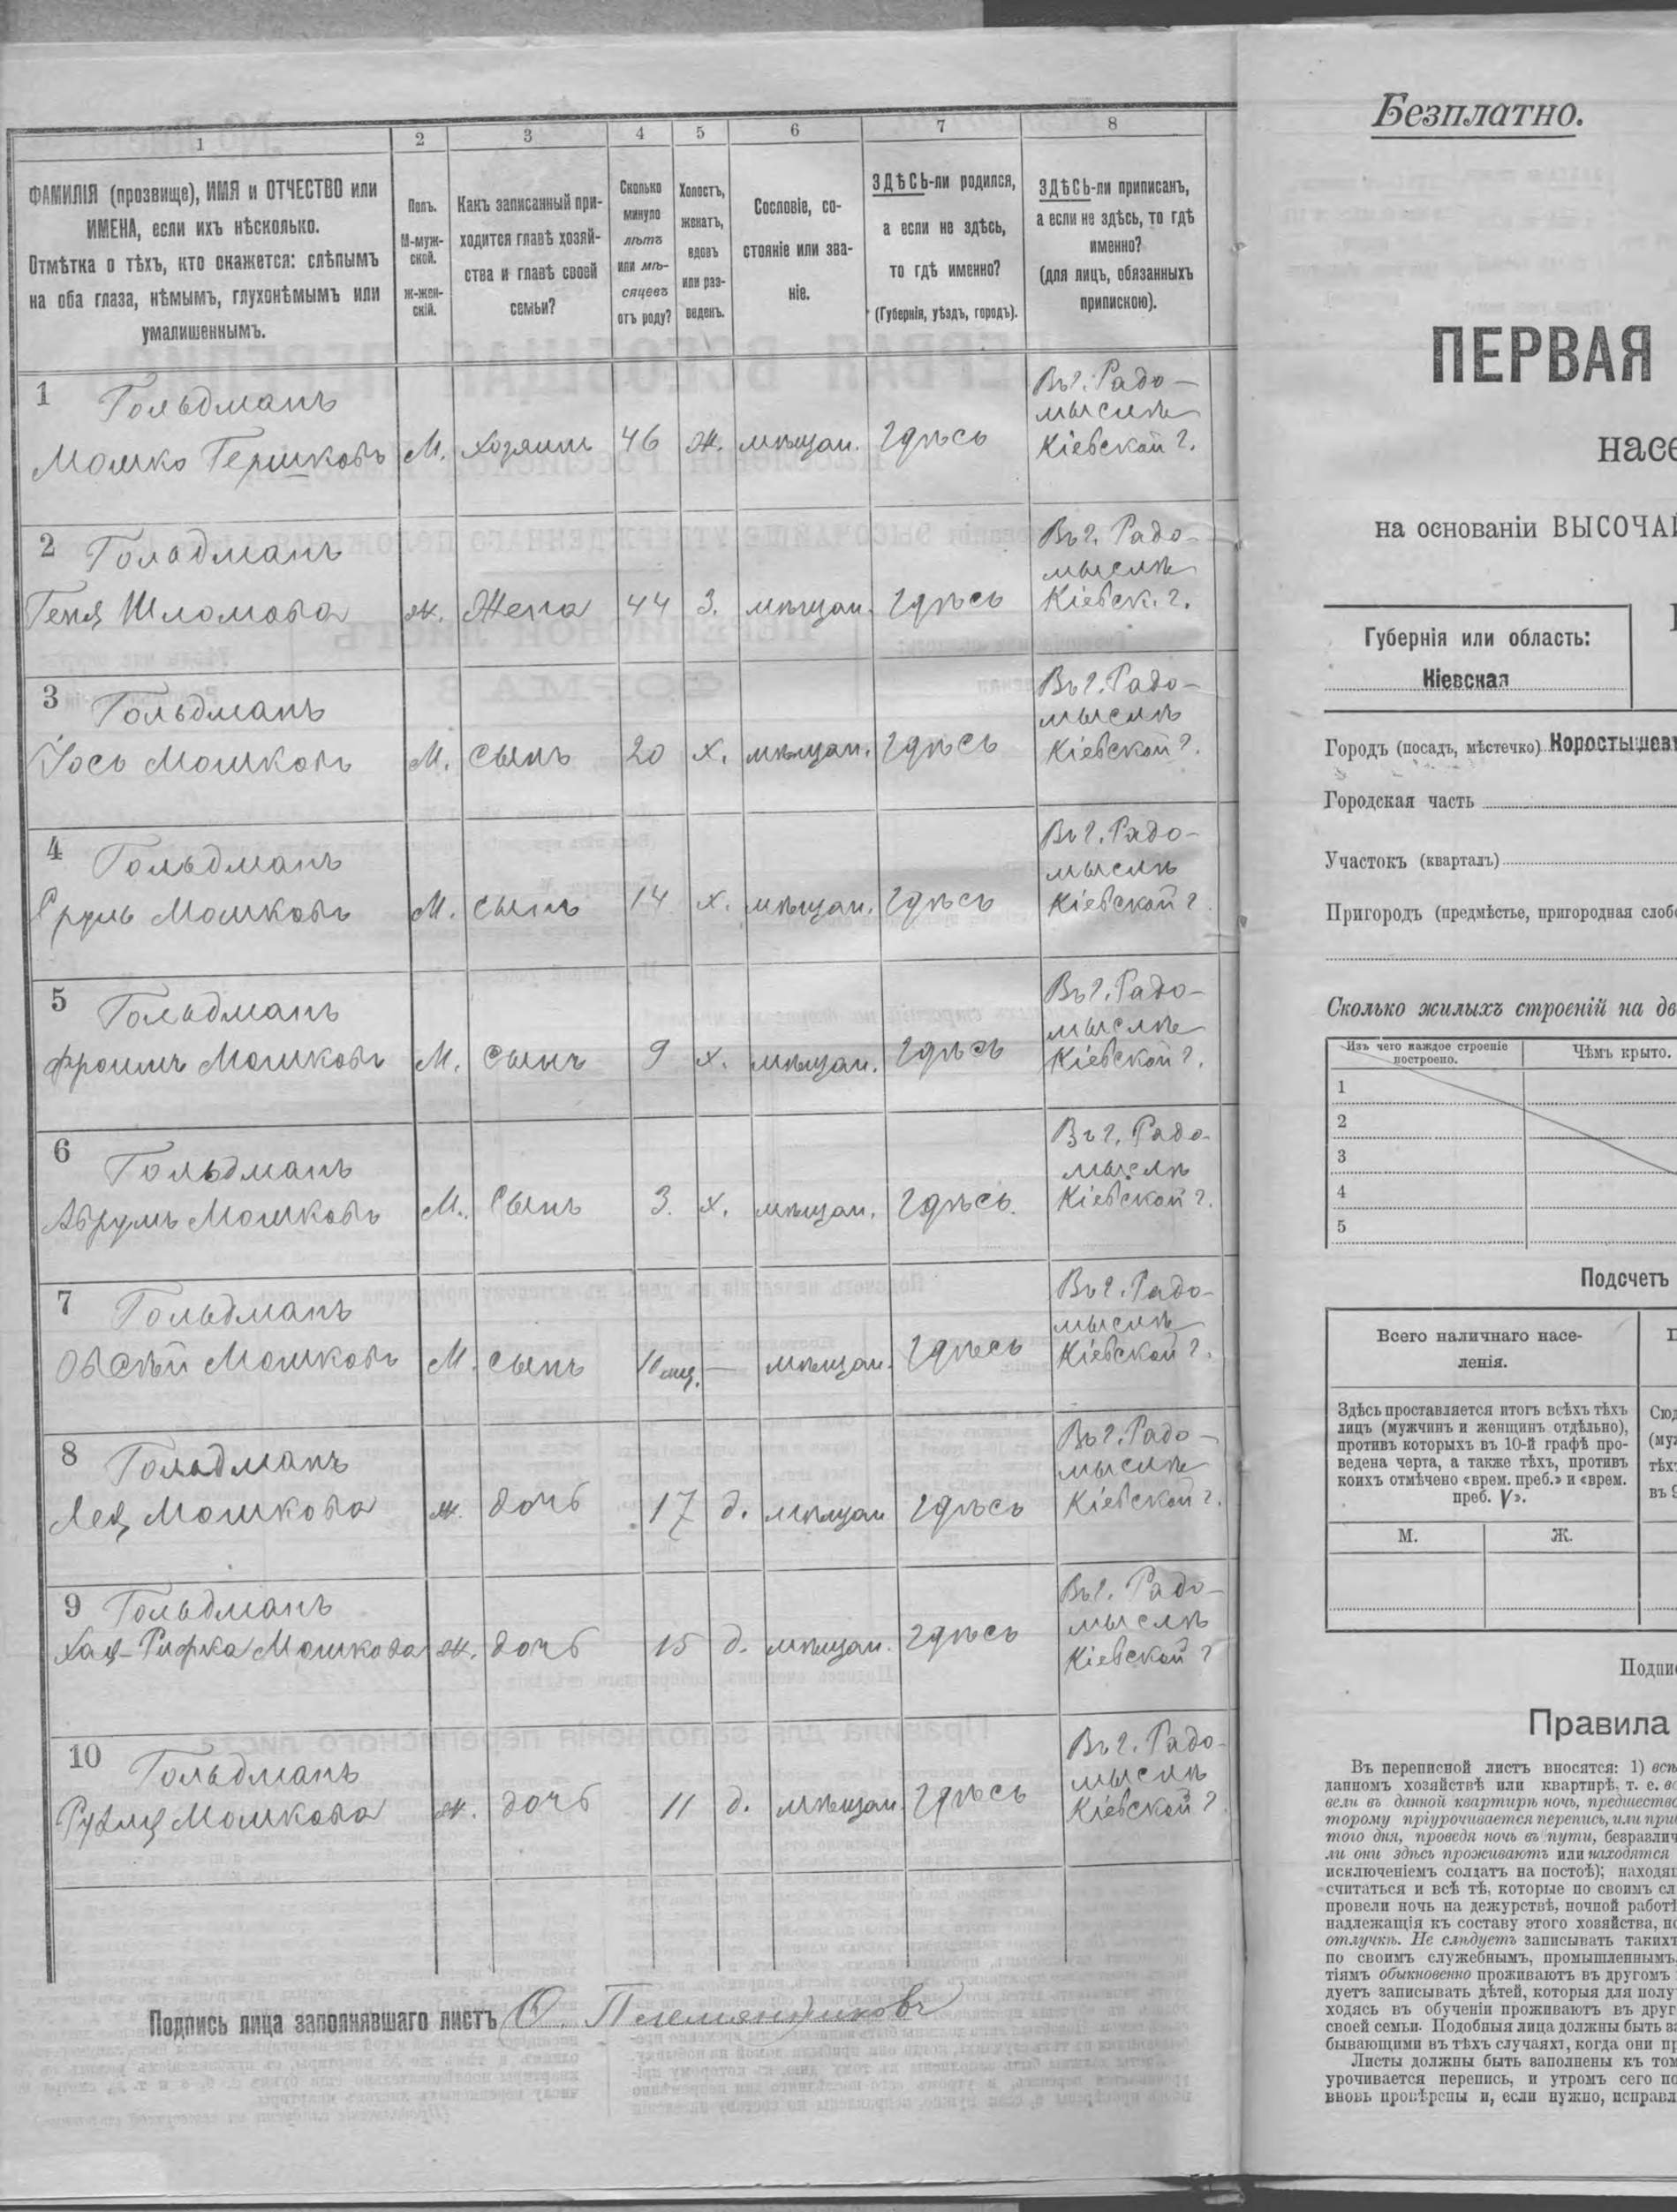 1
2
3
4
5
6
7
8
ФАМИЛІЯ (прозвище), ИМЯ и ОТЧЕСТВО или
ИМЕНА, если ихъ нѣсколько.
Отмѣтка о тѣхъ, кто окажется: слѣпымъ
на оба глаза, нѣмымъ, глухонѣмымъ или
умалишеннымъ.
Полъ.
М-муж-
ской.
Ж-жен-
скій.
Какъ записанный при-
ходится главѣ хозяй-
ства и главѣ своей
семьи?
Сколько
минуло
лѣтъ
или мѣ-
сяцевъ
отъ роду?
Холостъ,
женатъ,
вдовъ
или раз-
веденъ.
Сословіе, со-
стояніе или зва-
ніе.
ЗДѢСЬ-ли родился,
а если не здѣсь,
то гдѣ именно?
(Губернія, уѣздъ, городъ).
ЗДѢСЬ-ли приписанъ,
а если не здѣсь, то гдѣ
именно?
(для лицъ, обязанныхъ
припискою).
1 Гольдманъ
Мошко Гершковъ
М. Хозяинъ 46 Ж. мѣщан. здѣсь
Въ г. Радо-
мыслѣ
Кіевской г.
2 Гольдманъ
Геня Шломова
ж. Жена 44 З. мѣщан. здѣсь
Въ г. Радо-
мыслѣ
Кіевск. г.
3 Гольдманъ
Іось Мошковъ
М. сынъ 20 х. мѣщан. здѣсь
Въ г. Радо-
мыслѣ
Кіевской г.
4 Гольдманъ
Сруль Мошковъ
М. сынъ 14 х. мѣщан. здѣсь
Въ г. Радо-
мыслѣ
Кіевской г
5 Гольдманъ
Фроимъ Мошковъ
М. сынъ 9 х. мѣщан. здѣсь
Въ г. Радо-
мыслѣ
Кіевской г.
6 Гольдманъ
Аврумъ Мошковъ
М. сынъ 3. х. мѣщан. здѣсь.
Въ г. Радо-
мыслѣ
Кіевской г.
7 Гольдманъ
Овсѣй Мошковъ
М. сынъ 10 мц. — мѣщан. здѣсь
Въ г. Радо-
мыслѣ
Кіевской г.
8 Гольдманъ
Лея Мошкова
ж. дочь 17 д. мѣщан здѣсь
Въ г. Радо-
мыслѣ
Кіевской г.
9 Гольдманъ
Хая-Рифка Мошкова
ж. дочь 15 д. мѣщан. здѣсь
Въ г. Радо-
мыслѣ
Кіевской г
10 Гольдманъ
Мошкова
ж. дочь 11 д. мѣщан. здѣсь
Въ г. Радо-
мыслѣ
Кіевской г.
Подпись лица заполнявшаго листъ
Безплатно.
ПЕРВАЯ
насе
на основаніи ВЫСОЧАЙ
Губернія или область:
Кіевская
Городъ (посадъ, мѣстечко) Коростышевъ
Городская часть
Участокъ (кварталъ)
Пригородъ (предмѣстье, пригородная слоб
Сколько жилыхъ строеній на дв
Изъ чего каждое строеніе
построено.
Чѣмъ крыто.
1
2
3
4
5
Подсчетъ
Всего наличнаго насе-
ленія.
Здѣсь проставляется итогъ всѣхъ тѣхъ
лицъ (мужчинъ и женщинъ отдѣльно),
противъ которыхъ въ 10-й графѣ про-
ведена черта, а также тѣхъ, противъ
коихъ отмѣчено «врем. преб.» и «врем.
преб. V».
Сюд
(муж
тѣхъ
въ 9
М.
Ж.
Подпи
Правила
Въ переписной листъ вносятся: 1) всѣ
данномъ хозяйствѣ или квартирѣ, т. е. в
вели въ данной квартирѣ ночь, предшество
торому пріурочивается перепись, или при
того дня, проведя ночь въ пути, безразлич
ли они здѣсь проживаютъ или находятся
исключеніемъ солдатъ на постоѣ); находящ
считаться и всѣ тѣ, которые по своимъ сл
провели ночь на дежурствѣ, ночной работѣ
надлежащія къ составу этого хозяйства, но
отлучкѣ. Не слѣдуетъ записывать такихъ
по своимъ служебнымъ, промышленнымъ
тіямъ обыкновенно проживаютъ въ другомъ
дуетъ записывать дѣтей, которыя для полу
ходясь въ обученіи проживаютъ въ друг
своей семьи. Подобныя лица должны быть за
бывающими въ тѣхъ случаяхъ, когда они пр
Листы должны быть заполнены къ том
урочивается перепись, и утромъ сего по
вновь провѣрены и, если нужно, исправл